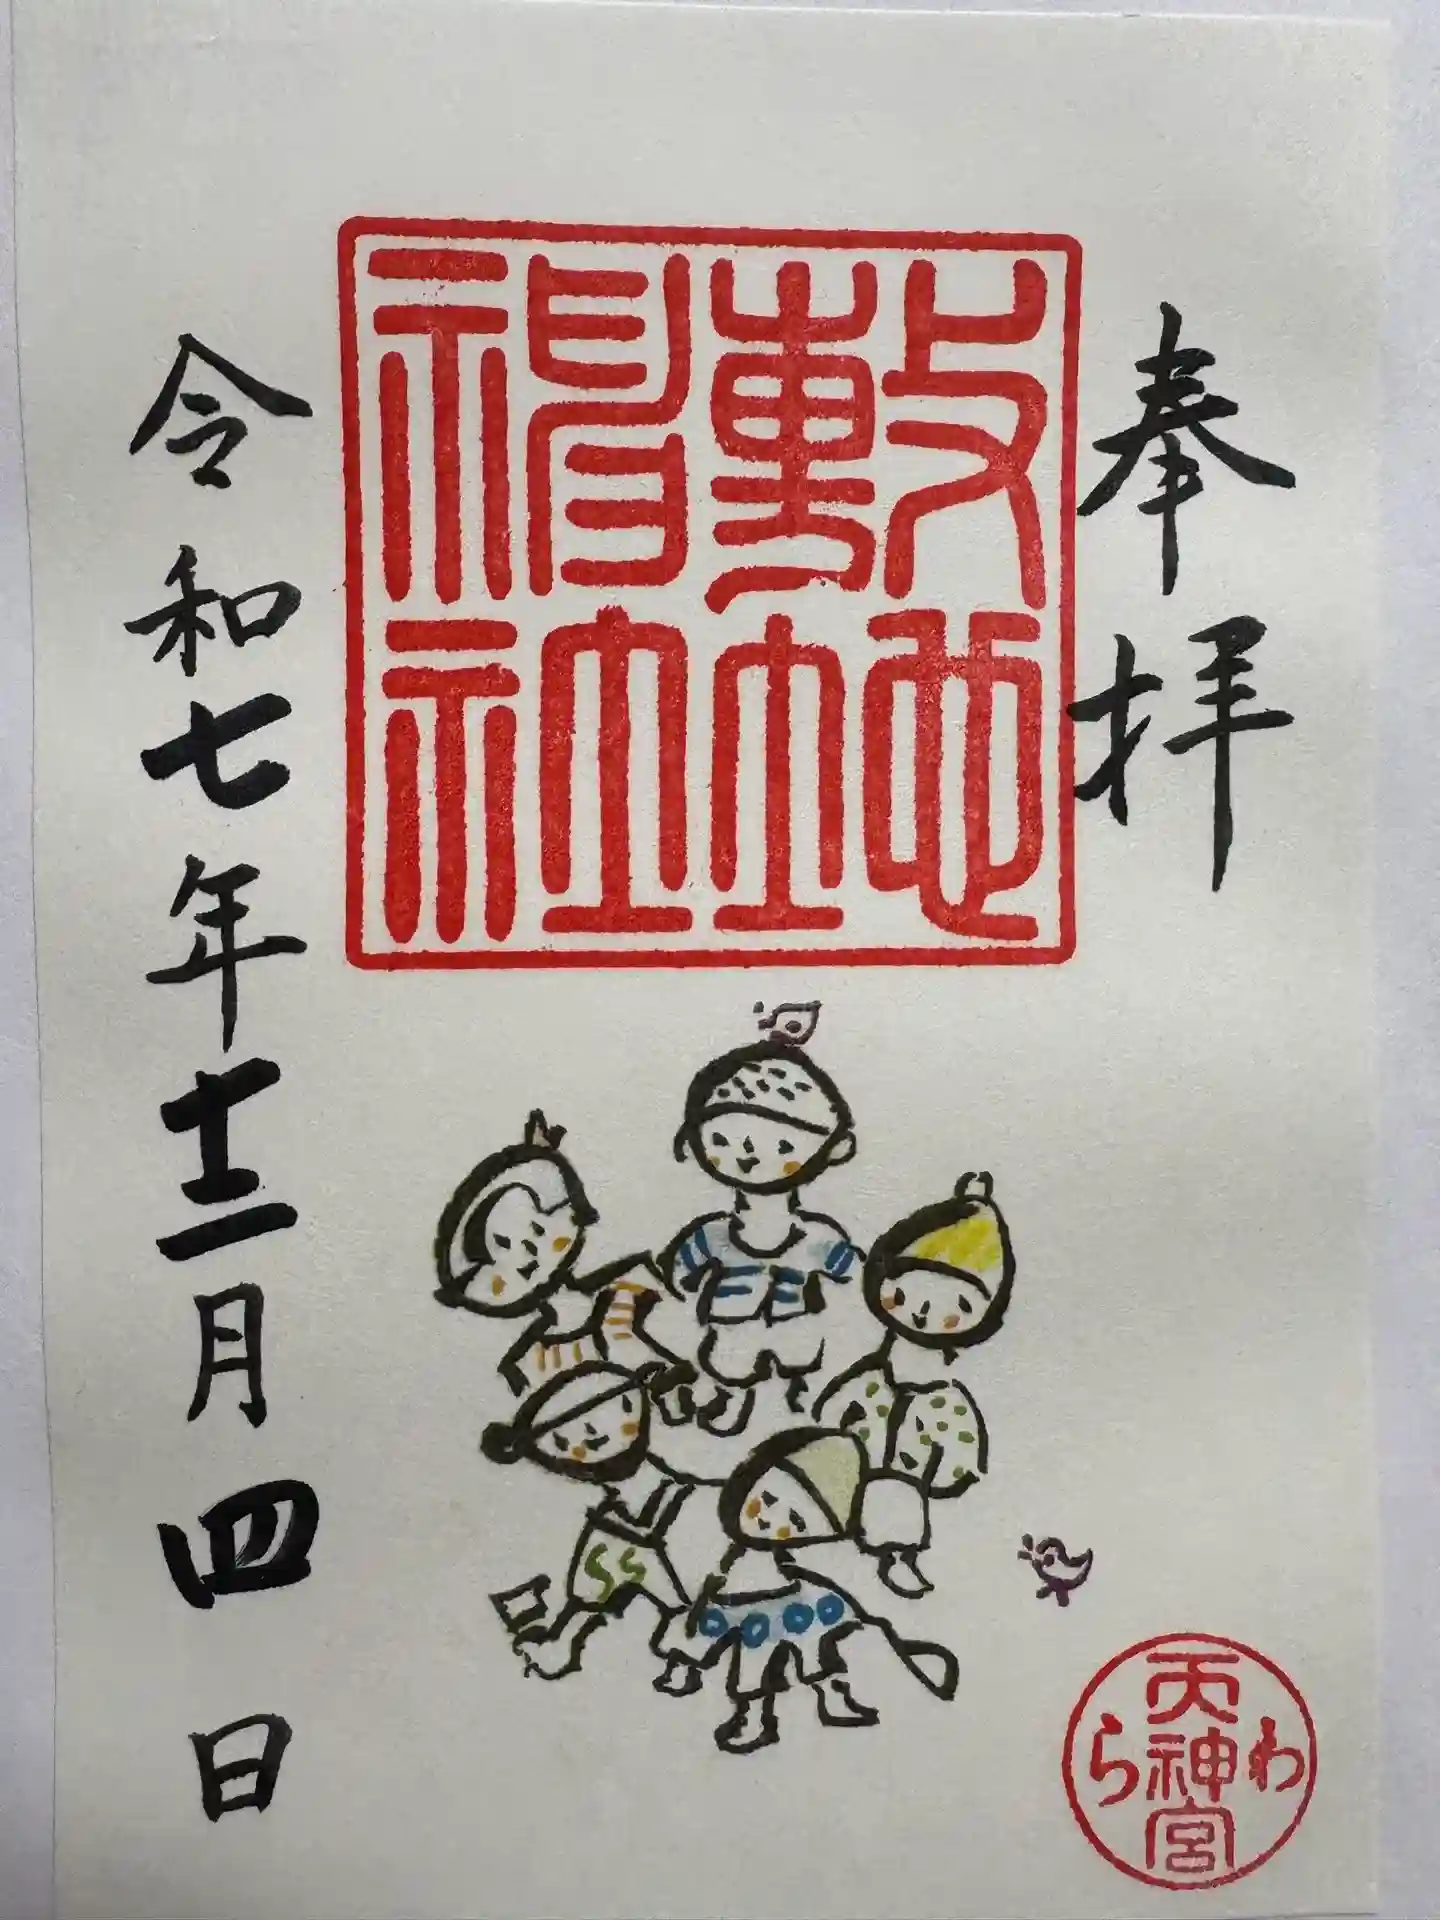 奉拝
敷地
神社
令和七年十二月四日
わら
天神宮